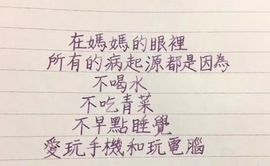 在媽媽的眼裡
所有的病起源都是因為
不喝水
不吃青菜
不早點睡覺
愛玩手機和玩電腦